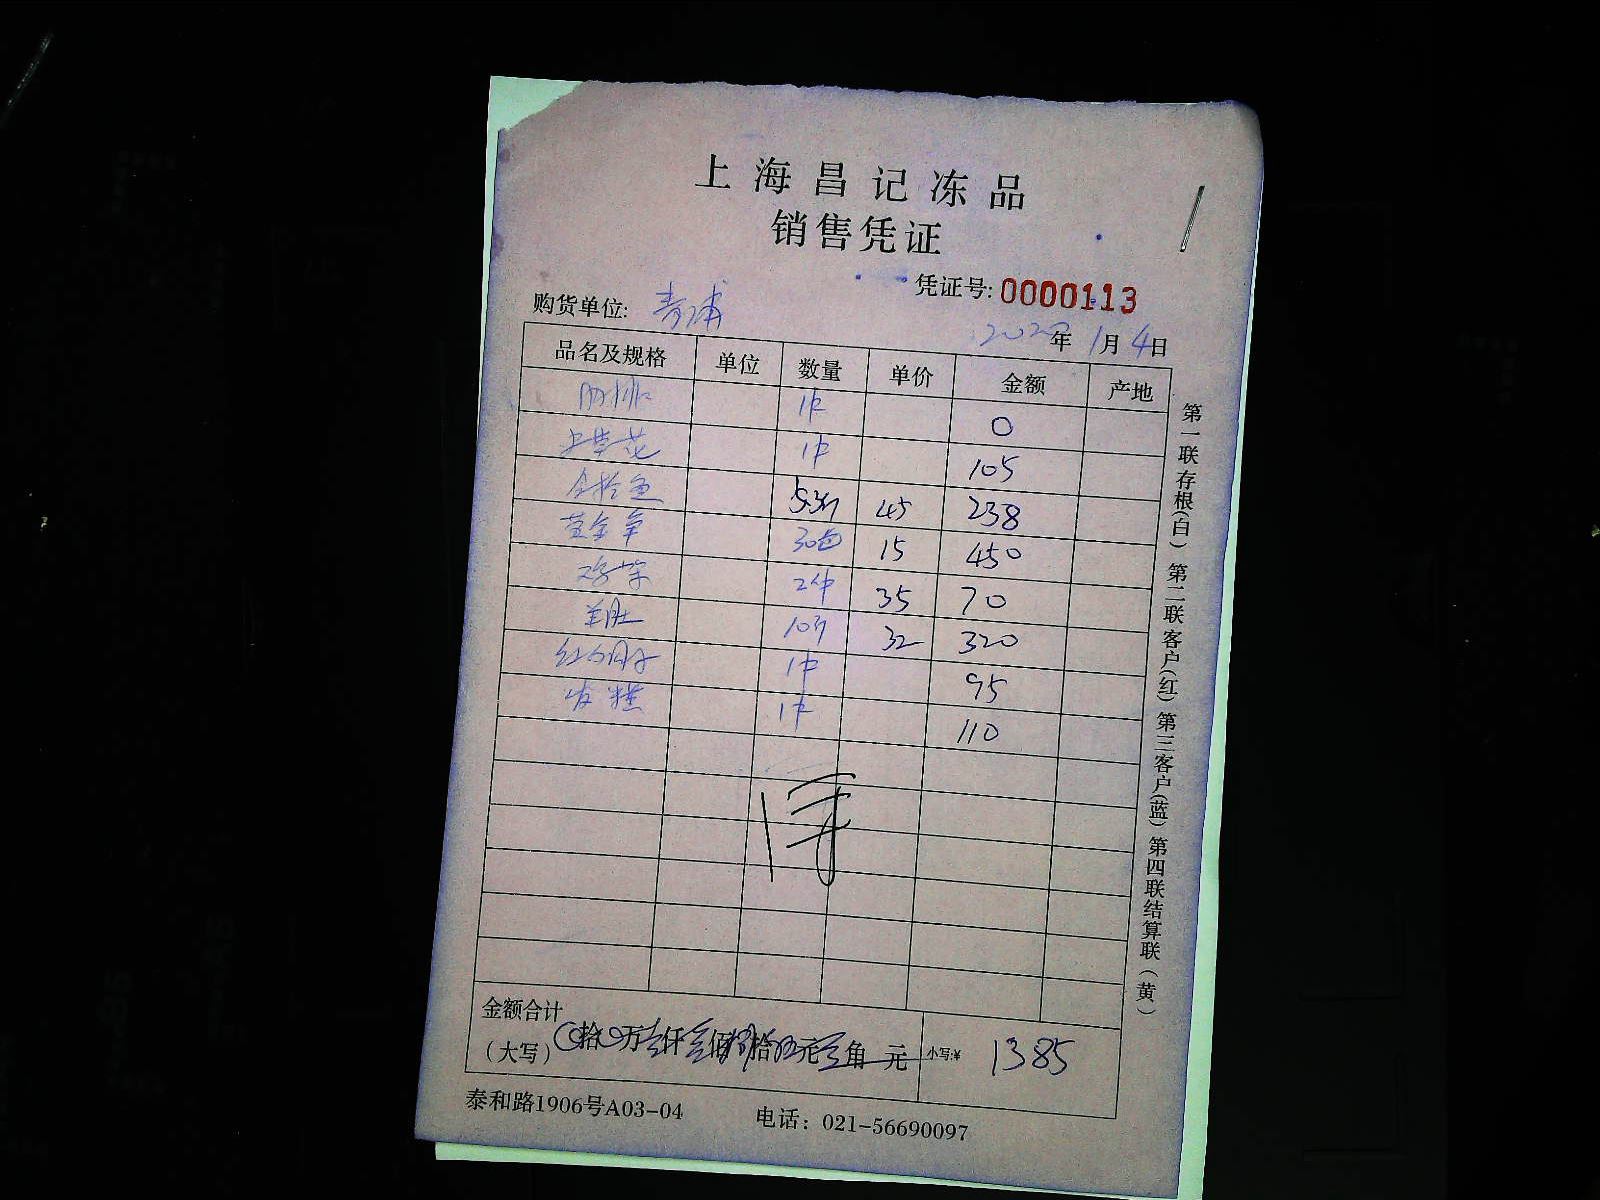 上海昌记冻品
销售凭证
凭证号: 0000113
购货单位: 青浦
年 1月4日
品名及规格 单位 数量 单价 金额 产地
1件 0
1件 105
5.3斤 45 238
30包 15 450
2件 35 70
羊肚 10斤 32 320
1件 95
发糕 1件 110
金额合计
(大写) 拾 万壹仟叁佰捌拾伍元 角 元 小写:¥ 1385
泰和路1906号A03-04 电话: 021-56690097
第一联存根(白) 第二联客户(红) 第三客户(蓝) 第四联结算联(黄)